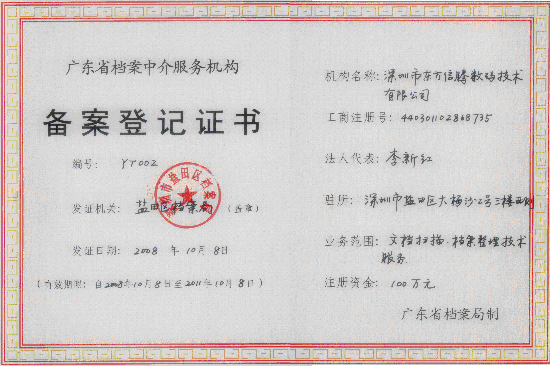 广东省档案中介服务机构
备案登记证书
编号： YT002
发证机关： 盐田区档案局 （盖章）
发证日期： 2008 年 10 月 8 日
（有效期限：自2008年10月8日至2011年10月8日）
深圳市盐田区档案局
机构名称：深圳市东方信腾数码技术
有限公司
工商注册号：440301102868735
法人代表：李新红
驻所：深圳市盐田区大梅沙2号三楼西侧
业务范围：文档扫描、档案整理技术
服务
注册资金：100万元
广东省档案局制